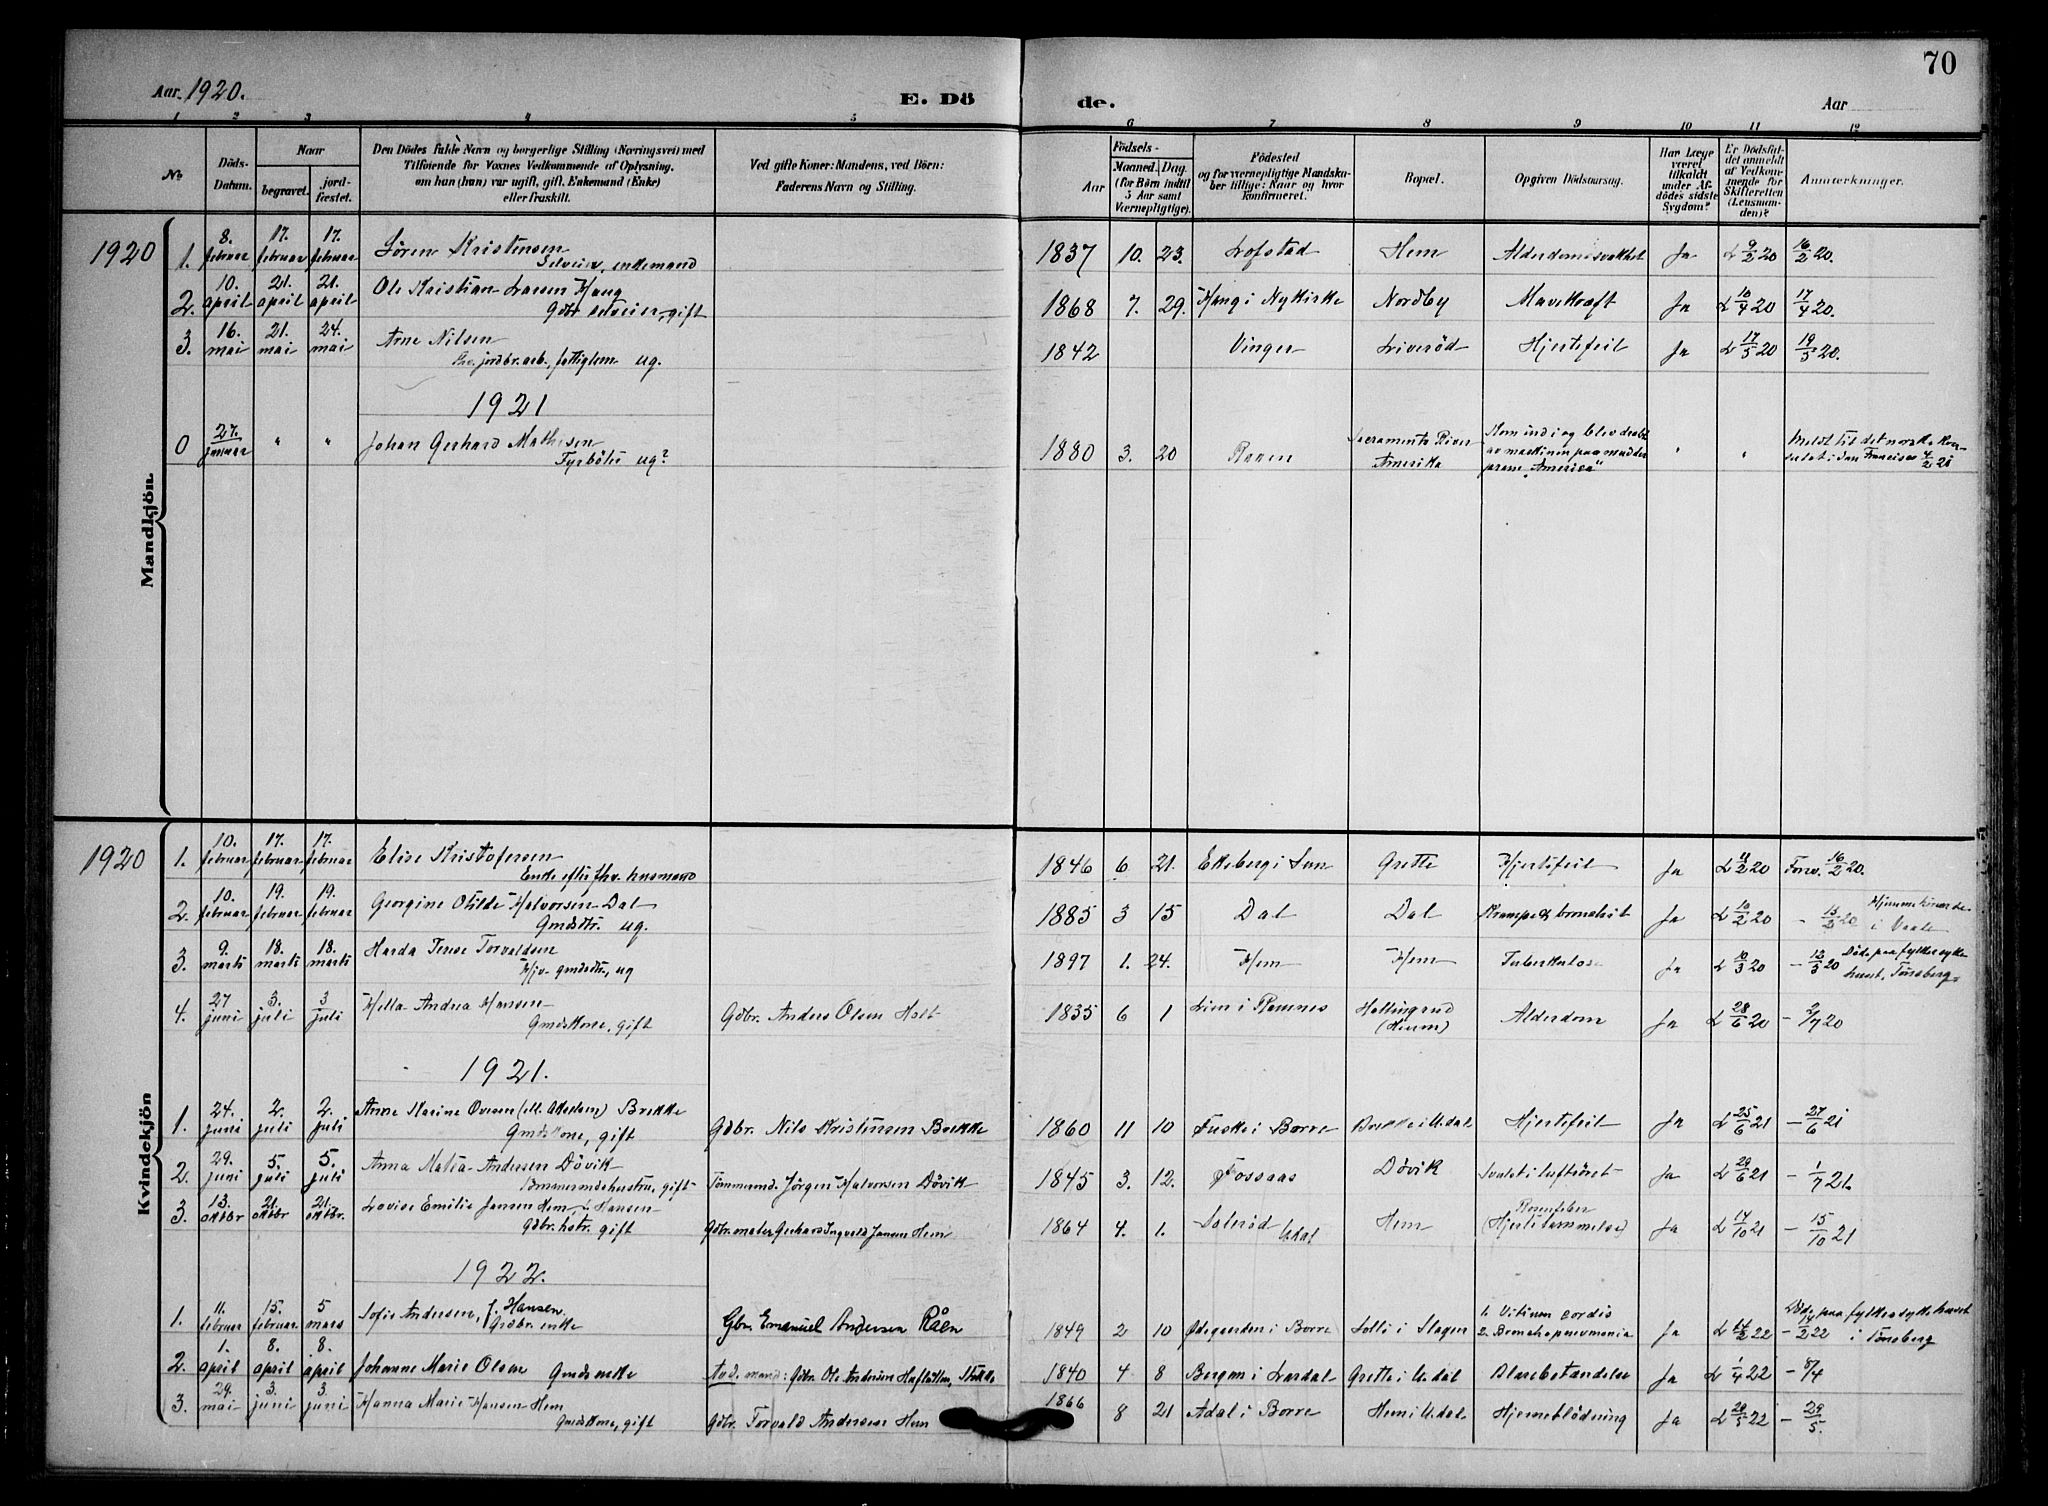 70
Aar. 1920.
E. Dö
de.
Aar
1 2 3 4 5 6 7 8 9 10 11 12
No
Döds-Datum.
Naar
begravet.
jord-fæstet.
Den Dödes fulde Navn og borgerlige Stilling (Næringsvei) med
Tilføiende for Voxnes Vedkommende af Oplysning,
om han (hun) var ugift, gift, Enkemand (Enke)
eller fraskilt.
Ved gifte Koner: Mandens, ved Börn:
Faderens Navn og Stilling.
Födsels-
Aar
Maaned. Dag.
(for Börn indtil
5 Aar samt
Værnepligtige).
Födested
og for værnepligtige Mandska-
ber tillige: Naar og hvor
konfirmeret.
Bopæl.
Opgiven Dödsaarsag.
Har Læge
været
tilkaldt
under Af-
dödes sidste
Sygdom?
Er Dödsfal-
det anmeldt
af Vedkom-
mende for
Skifteretten
(Lensman-
den)?
Anmærkninger.
Mandkjön.
1920
1. 8. februar 17. februar 17. februar Sören Kristensen 1837 10. 23. Lofstad Hem Alderdomssvakhet Ja L 9/2 20 16/2 20.
Selveier, enkemand
2. 10. april 21. april 21. april Ole Kristian Larsen Haug 1868 7. 29. Haug i Nykirke Nordby Mavekræft Ja L 10/4 20 17/4 20.
Gdbr selveier, gift
3. 16. mai 21. mai 24. mai Arne Nilsen 1842 Vinger Liveröd Hjertefeil Ja L 17/5 20 19/5 20.
jordbr. arb., fattiglem ug.
1921
0 27. januar " " Johan Gerhard Mathisen 1880 3. 20 Raaen Sacramento River Amerika Kom ind i og blev dræbt av maskinen paa mudder pram "America" " " Meldt til det norske kon-sulat i San Francisco 4/2 21
Fyrböter ug?
Kvindekjön
1920
1. 10. februar 17. februar 17. februar Elise Kristofersen 1846 6 21. Ekeberg i Sem Grette Hjertefeil Ja L 11/2 20 Forev. 16/2 20.
Enke efter fhv. husmand
2. 10. februar 19. februar 19. februar Georgine Otilde Halvorsen Dal 1885 3 15 Dal Dal Krampe & bronchit Ja L 10/2 20 - 15/2 20 i Vaale
Gmdsdtr. ug.
3. 9. marts 18. marts 18. marts Harda Terese Torvaldsen 1897 1. 24. Hem Hem Tuberkulose Ja L 10/3 20 - 13/3 20 Döde paa fylkessyke-huset, Tönsberg
gmdsdtr, ug
4. 27 juni 3. juli 3 juli Hella Andrea Hansen Gdbr. Anders Olsen Holt 1835 6 1 Lien i Ramnes Hallingrud Alderdom Ja L 28/6 20 - 2/7 20
Gmdskone, gift
1921.
1. 24. juni 2. juli 2. juli Anne Karine Ovesen Brekke Gdbr. Nils Kristensen Brekke 1860 11 10 Fuske i Borre Brekke i Undal Hjertefeil Ja L 25/6 21 - 27/6 21
Gmdskone, gift
2. 29. juni 5. juli 5. juli Anna Matea Andersen Dövik Tömmermd. Jörgen Halvorsen Dövik 1845 3. 12. Fossaas Dövik Svulst i luftröret Ja L 29/6 21 - 1/7 21.
Tömmermandshustru, gift
3. 13. oktbr 21. oktbr 21. oktbr. Lovise Emilie Jansen Hem f. Hansen Gdbr. Gerhard Ingvald Jansen Hem 1864 4. 1. Daleröd Undal Hem Rosenfeber (Hjertelammelse) Ja L 14/10 21 - 15/10 21
Gdbr. hstr. gift
1922.
1. 11. februar 15. februar 5 mars Sofie Andersen, f. Hansen Gbr. Emanuel Andersen Råen 1849 2 10 Ödegaarden i Borre Solli i Slagen 1. Vitium cordis 2. Bronchopneumonia Ja L 14/2 22 - 14/2 22 Död paa fylkessykehuset i Tönsberg
Grdbr. enke
2. 1. april 8. april 8. april Johanne Marie Olsen Gmds enke Avd. mand: Gdbr. Ole Andersen 1840 4 8 Bergan i Lardal Grette i Undal Blærebetændelse Ja L 1/4 22 - 8/4
3. 29. mai 3. juni 3. juni Hanna Marie Hansen Hem Gdbr. Torvald Andersen Hem 1866 8 21 Adal i Borre Hem i Undal Hjerneblödning Ja L 29/5 22 - 29/5.
Gmdskone, gift